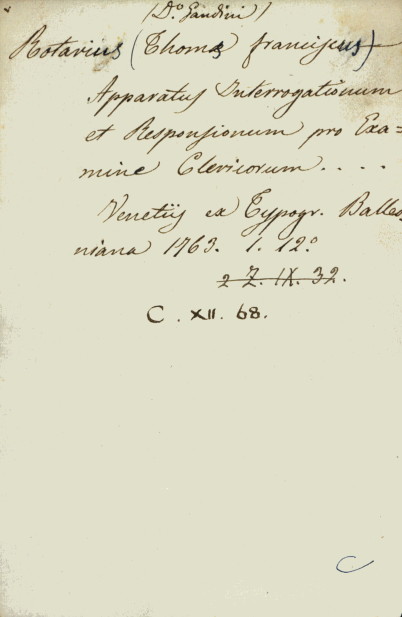 (D.º Gandini)
Rotarius (Thomas franciscus)
Apparatus Interrogationum
et Responsionum pro Exa=
mine Clericorum . . . .
Venetiis ex Typogr. Balleo=
niana 1763. 1. 12º
2 Z. IX. 32.
C. XII. 68.
C